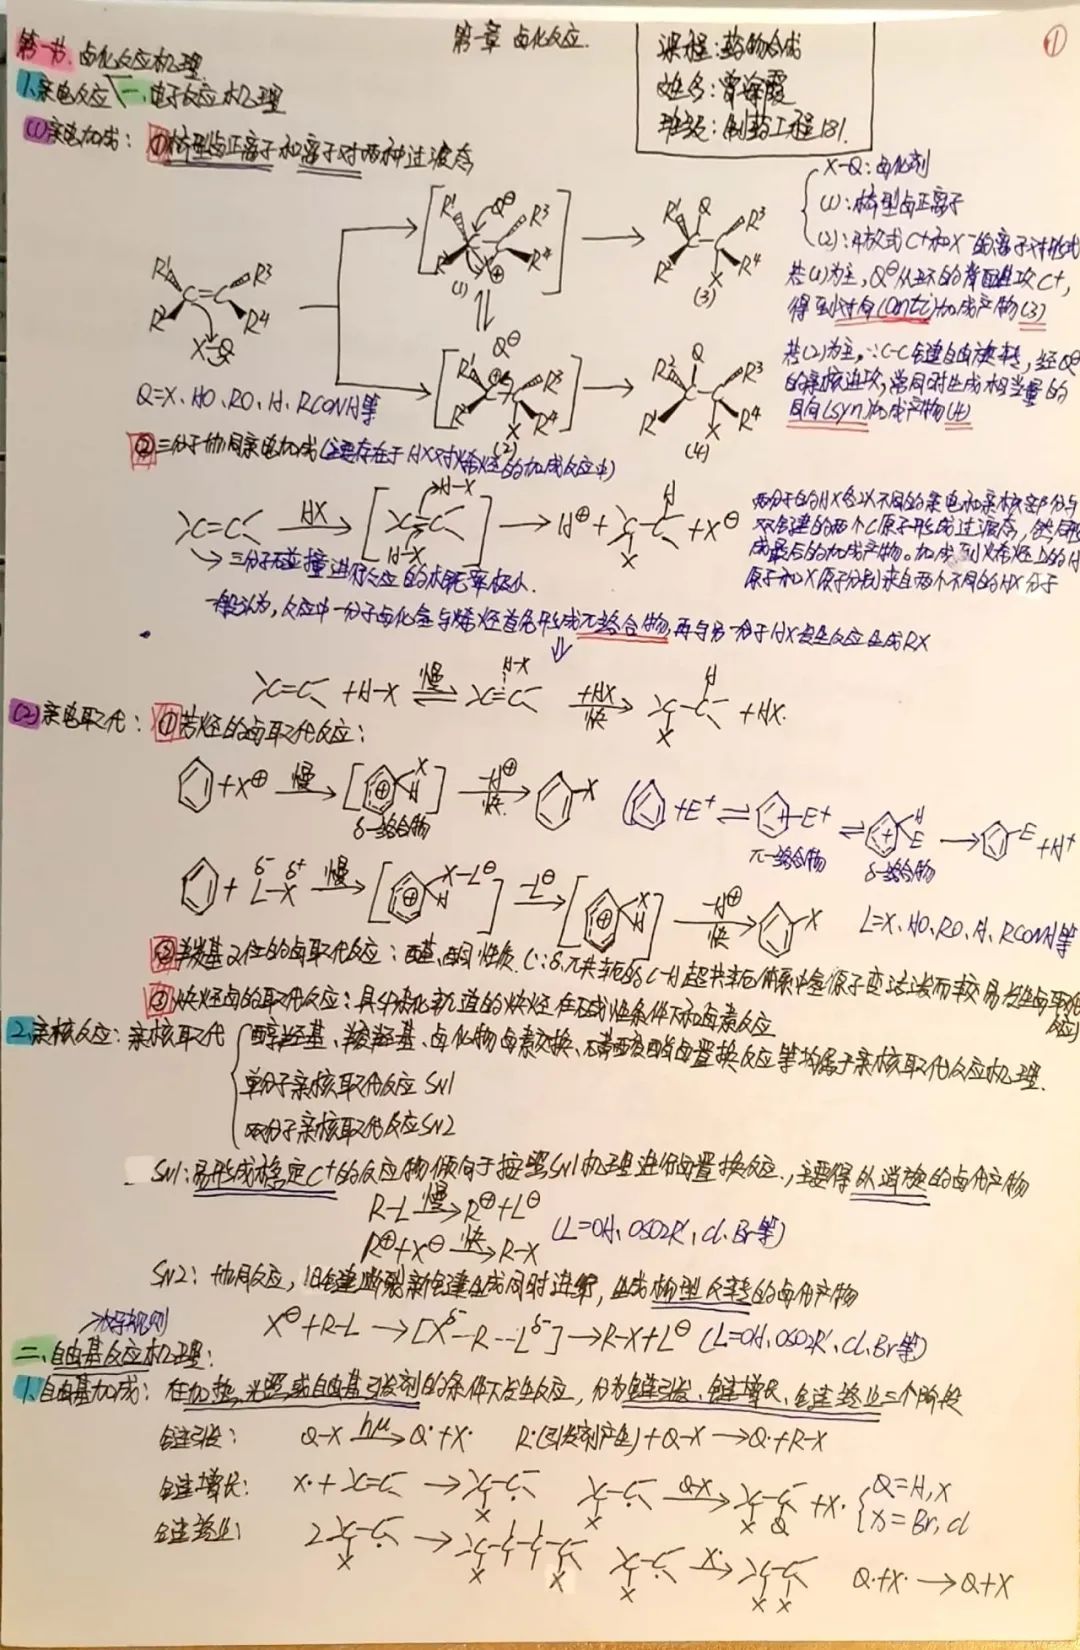 第一章 卤化反应.
①
课程:药物合成
班级:制药工程181.
第一节.卤化反应机理
1.亲电反应 一.电子反应机理
(1)亲电加成: ①桥型卤正离子和离子对两种过渡态
X-Q:卤化剂
(1):桥型卤正离子
(2):开放式C+和X-的离子对形式
若(1)为主,Q⊖从环的背面进攻C+,
得到对向(anti)加成产物(3)
若(2)为主,∵C-C键自由旋转,经Q⊖
的亲核进攻,常同时生成相当量的
同向(syn)加成产物(4)
R¹ R² C=C R³ R⁴
X-Q
R¹ R² Q⊖ R³ R⁴ X⊕
(1)
R¹ Q R³ R² X R⁴
(3)
Q⊖
R¹ R² C⊕ R³ R⁴ X
(2)
R² Q R³ R¹ X R⁴
(4)
Q=X、HO、RO、H、RCONH等
②三分子协同亲电加成(主要存在于HX对烯烃的加成反应中)
C=C HX→ [H-X C=C H-X] → H⊕+ C-C H X +X⊖
两分子的HX各以不同的亲电和亲核部分与
双键的两个C原子形成过渡态,然后形
成最后的加成产物。加成到烯烃上的H
原子和X原子分别来自两个不同的HX分子
→三分子碰撞进行反应的机率极小.
一般认为,反应中一分子卤化氢与烯烃首先形成π络合物,再与另一分子HX发生反应生成RX
⇓
C=C +H-X 慢⇌ C=C H-X +HX快→ C-C H X +HX.
(2)亲电取代: ①芳烃的卤取代反应:
+X⊕ 慢→ [⊕ X H] -H⊕快→ X
δ-络合物
( +E⁺ ⇌ -E⁺ ⇌ + H E → E +H⁺
π-络合物
δ-络合物
+ δ⁻ δ⁺ L-X 慢→ [⊕ X-L⊖ H] -L⊖→ [⊕ X H] -H⊕快→ X
L=X、HO、RO、H、RCONH等
②羰基α位的卤取代反应:醛、酮性质.(∵δ,π共轭的C-H超共轭体系中氢原子变活泼而较易发生卤取代
反应)
③炔烃卤的取代反应:具SP杂化轨道的炔烃在碱性条件下和卤素反应
2.亲核反应:亲核取代 醇羟基、羧羟基、卤化物卤素交换、磺酸酯卤置换反应等均属于亲核取代反应机理.
单分子亲核取代反应SN1
双分子亲核取代反应SN2
SN1:易形成稳定C⁺的反应物倾向于按照SN1机理进行卤置换反应.,主要得外消旋的卤代产物
R-L 慢→ R⊕+L⊖
R⊕+X⊖ 快→ R-X
(L=OH、OSO2R'、Cl、Br等)
SN2:协同反应,旧键断裂新键生成同时进行,生成构型反转的卤代产物
X⊖+R-L→[Xδ⁻--R--Lδ⁻]→R-X+L⊖ (L=OH、OSO2R'、Cl、Br等)
二、自由基反应机理:
1.自由基加成:在加热、光照或自由基引发剂的条件下发生反应,分为链引发、链增长、链终止三个阶段
链引发: Q-X hμ→ Q·+X· R·(引发剂产生)+Q-X→Q·+R-X
链增长: X·+ C=C → C-C· X C-C· X Q-X→ C-C X Q +X· Q=H,X
X=Br,Cl
链终止: 2 C-C· X → C-C-C-C X X C-C· X X·→ C-C X X Q·+X·→Q+X